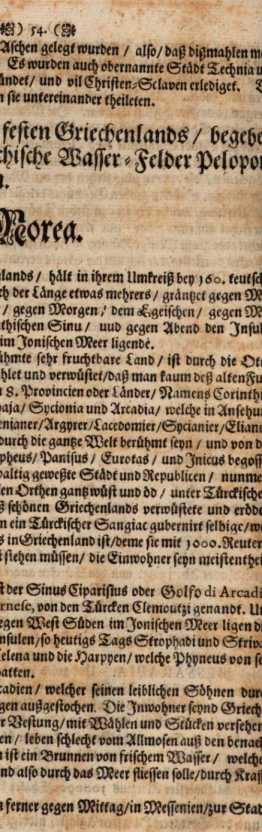 ) 54. (
Aschen gelegt wurden / also / daß dißmahlen m
Es wurden auch obernannte Städt Technia u
ündet / und vil Christen-Sclaven erlediget.
n sie untereinander theileten.
festen Griechenlands / begebe
chische Wasser-Felder Pelopon
n.
Morea.
lands / hält in ihrem Umkreiß bey 160. teutsch
ch der Länge etwas mehrers / gräntzet gegen M
/ gegen Morgen / dem Ægeischen / gegen M
nthischen Sinu / uud gegen Abend den Insul
im Jonischen Meer ligende.
ühmte sehr fruchtbare Land / ist durch die Ott
ählet und verwüstet / daß man kaum deß alten Fu
n 8. Provincien oder Länder / Namens Corinthi
paja / Sycionia und Arcadia / welche in Ansehun
enianer / Argyrer / Lacedomier / Sycianier / Eliane
durch die gantze Welt berühmt seyn / und von d
pheus / Panisus / Eurotas / und Inicus begoss
valtig geweßte Städt und Republicen / nunme
en Orthen gantz wüst und öd / unter Türckische
ß schönen Griechenlands verwüstete und eröde
n ein Türckischer Sangiac gubernirt selbige / w
s in Griechenland ist / deme sie mit 1000. Reuter
t stehen müssen / die Einwohner seyn meistentheil
st der Sinus Ciparisius oder Golfo di Arcadi
rnese, von den Türcken Clemoutzi genandt. Un
egen West Süden im Jonischen Meer ligen di
nsulen / so heutigs Tags Strophadi und Striv
elena und die Harpyen / welche Phyneus von se
atten.
cadien / welcher seinen leiblichen Söhnen durc
gen außgestochen. Die Inwohner seynd Griech
r Vestung / mit Wählen und Stücken versehen
en / leben schlecht vom Allmosen auß den benach
n ist ein Brunnen von frischem Wasser / welche
nd also durch das Meer fliessen solle / durch Krafft
n ferner gegen Mittag / in Messenien / zur Stad